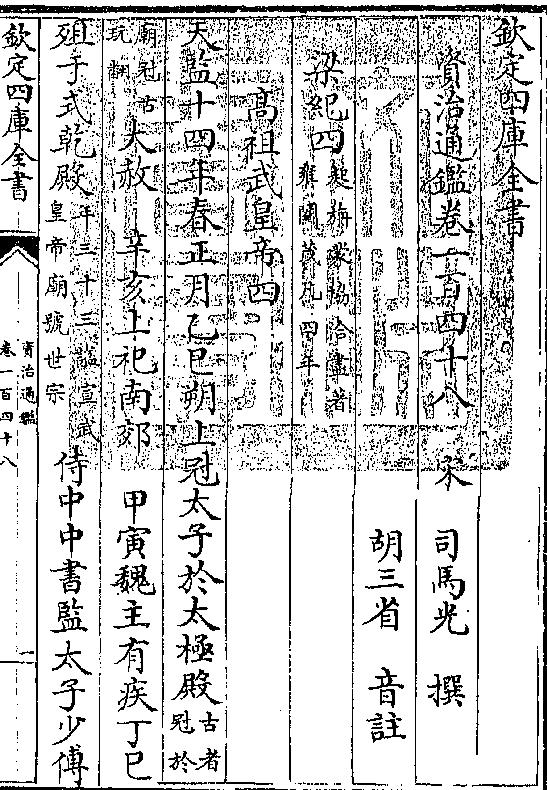 欽定四庫全書
資治通鑑卷一百四十八
宋 司馬光 撰
胡三省 音註
梁紀四起旃蒙協洽盡著
雍閹茂凡四年
高祖武皇帝四
天監十四年春正月乙巳朔上冠太子於太極殿古者
冠於
廟冠古
玩翻大赦 辛亥上祀南郊 甲寅魏主有疾丁巳
殂于式乾殿年三十三諡宣武
皇帝廟號世宗侍中中書監太子少傅
欽定四庫全書
資治通鑑
卷一百四十八
一